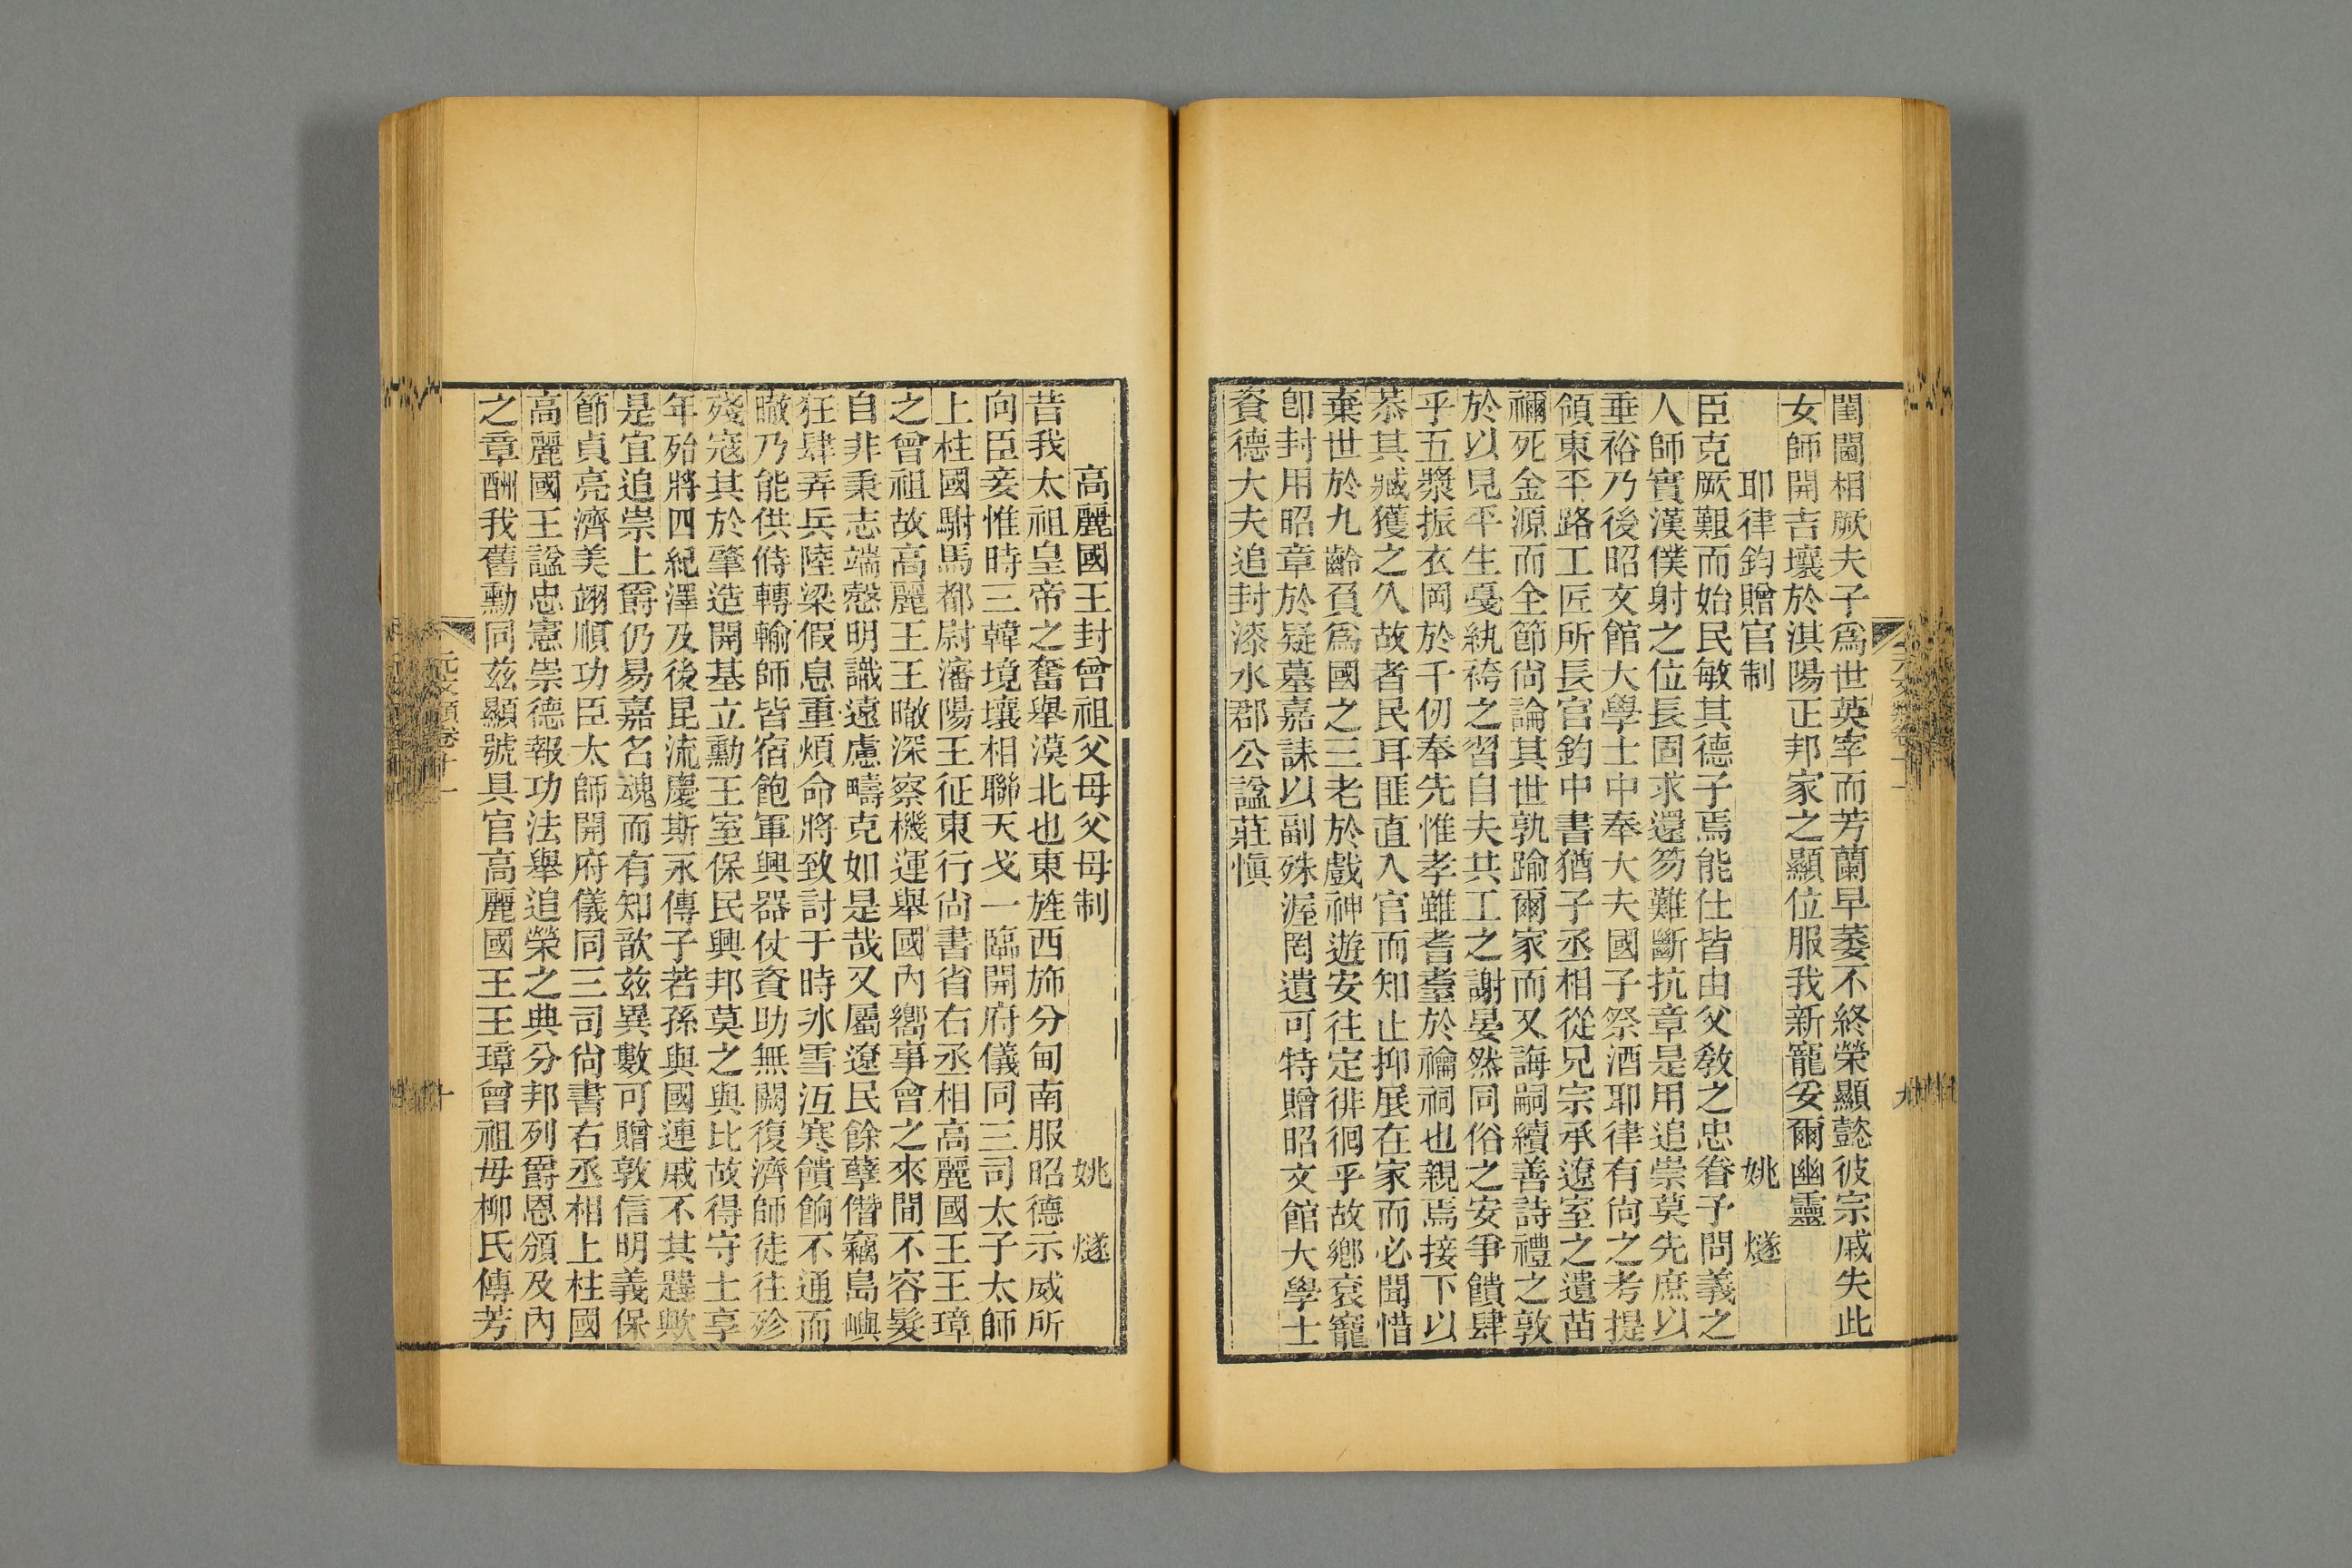 閨閫相厥夫子爲世英宰而芳蘭早萎不終榮顯懿彼宗戚失此
女師開吉壤於淇陽正邦家之顯位服我新寵妥爾幽靈
耶律鈞贈官制 姚燧
臣克厥艱而始民敏其德子焉能仕皆由父敎之忠眷予問義之
人師實漢僕射之位長固求還笏難斷抗章是用追崇莫先庶以
垂裕乃後昭文館大學士中奉大夫國子祭酒耶律有尙之考提
領東平路工匠所長官鈞中書猶子丞相從兄宗承遼室之遺苗
禰死金源而全節尙論其世孰踰爾家而又誨嗣續善詩禮之敦
於以見平生戞紈袴之習自夫共工之謝晏然同俗之安爭饋肆
乎五漿振衣岡於千仞奉先惟孝雖耆耋於禴祠也親焉接下以
恭其臧獲之久故者民耳匪直入官而知止抑展在家而必聞惜
棄世於九齡負爲國之三老於戲神遊安往定徘徊乎故鄕袞寵
卽封用昭章於疑墓嘉誄以副殊渥罔遺可特贈昭文館大學士
資德大夫追封漆水郡公諡莊愼
九
高麗國王封曾祖父母父母制 姚燧
昔我太祖皇帝之奮舉漠北也東旌西斾分甸南服昭德示威所
向臣妾惟時三韓境壤相聯天戈一臨開府儀同三司太子太師
上柱國駙馬都尉瀋陽王征東行尙書省右丞相高麗國王王璋
之曾祖故高麗王王暾深察機運舉國內嚮事會之來間不容髮
自非秉志端慤明識遠慮疇克如是哉又屬遼民餘孽僭竊島嶼
狂肆弄兵陸梁假息重煩命將致討于時冰雪沍寒饋餉不通而
暾乃能供偫轉輸師皆宿飽軍興器仗資助無闕復濟師徒往殄
殘寇其於肇造開基立勳王室保民興邦莫之與比故得守土享
年殆將四紀澤及後昆流慶斯永傳子若孫與國連戚不其韙歟
是宜追崇上爵仍易嘉名魂而有知歆茲異數可贈敦信明義保
節貞亮濟美翊順功臣太師開府儀同三司尙書右丞相上柱國
高麗國王諡忠憲崇德報功法舉追榮之典分邦列爵恩頒及內
之章酬我舊勳同茲顯號具官高麗國王王璋曾祖母柳氏傳芳
元文類卷十一
十